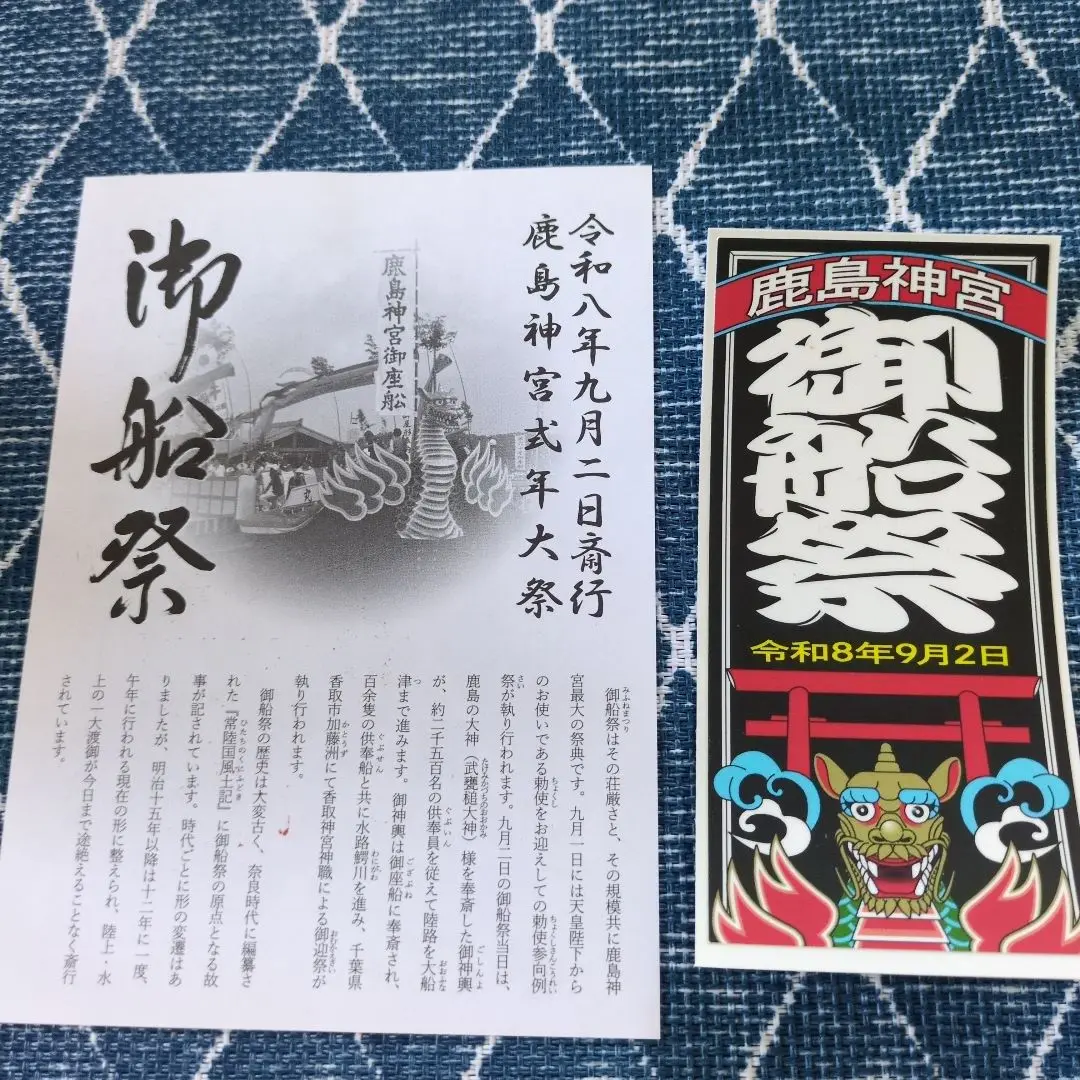 令和八年九月二日斎行
鹿島神宮式年大祭
鹿島神宮御座船
御船祭
御船祭はその荘厳さと、その規模共に鹿島神
宮最大の祭典です。九月一日には天皇陛下から
のお使いである勅使をお迎えしての勅使参向例
祭が執り行われます。九月二日の御船祭当日は、
鹿島の大神（武甕槌大神）様を奉斎した御神輿
が、約二千五百名の供奉員を従えて陸路を大船
津まで進みます。御神輿は御座船に奉斎され、
百余隻の供奉船と共に水路鰐川を進み、千葉県
香取市加藤洲にて香取神宮神職による御迎祭が
執り行われます。
御船祭の歴史は大変古く、奈良時代に編纂さ
れた『常陸国風土記』に御船祭の原点となる故
事が記されています。時代ごとに形の変遷はあ
りましたが、明治十五年以降は十二年に一度、
午年に行われる現在の形に整えられ、陸上・水
上の一大渡御が今日まで途絶えることなく斎行
されています。
鹿島神宮
御船祭
令和8年9月2日